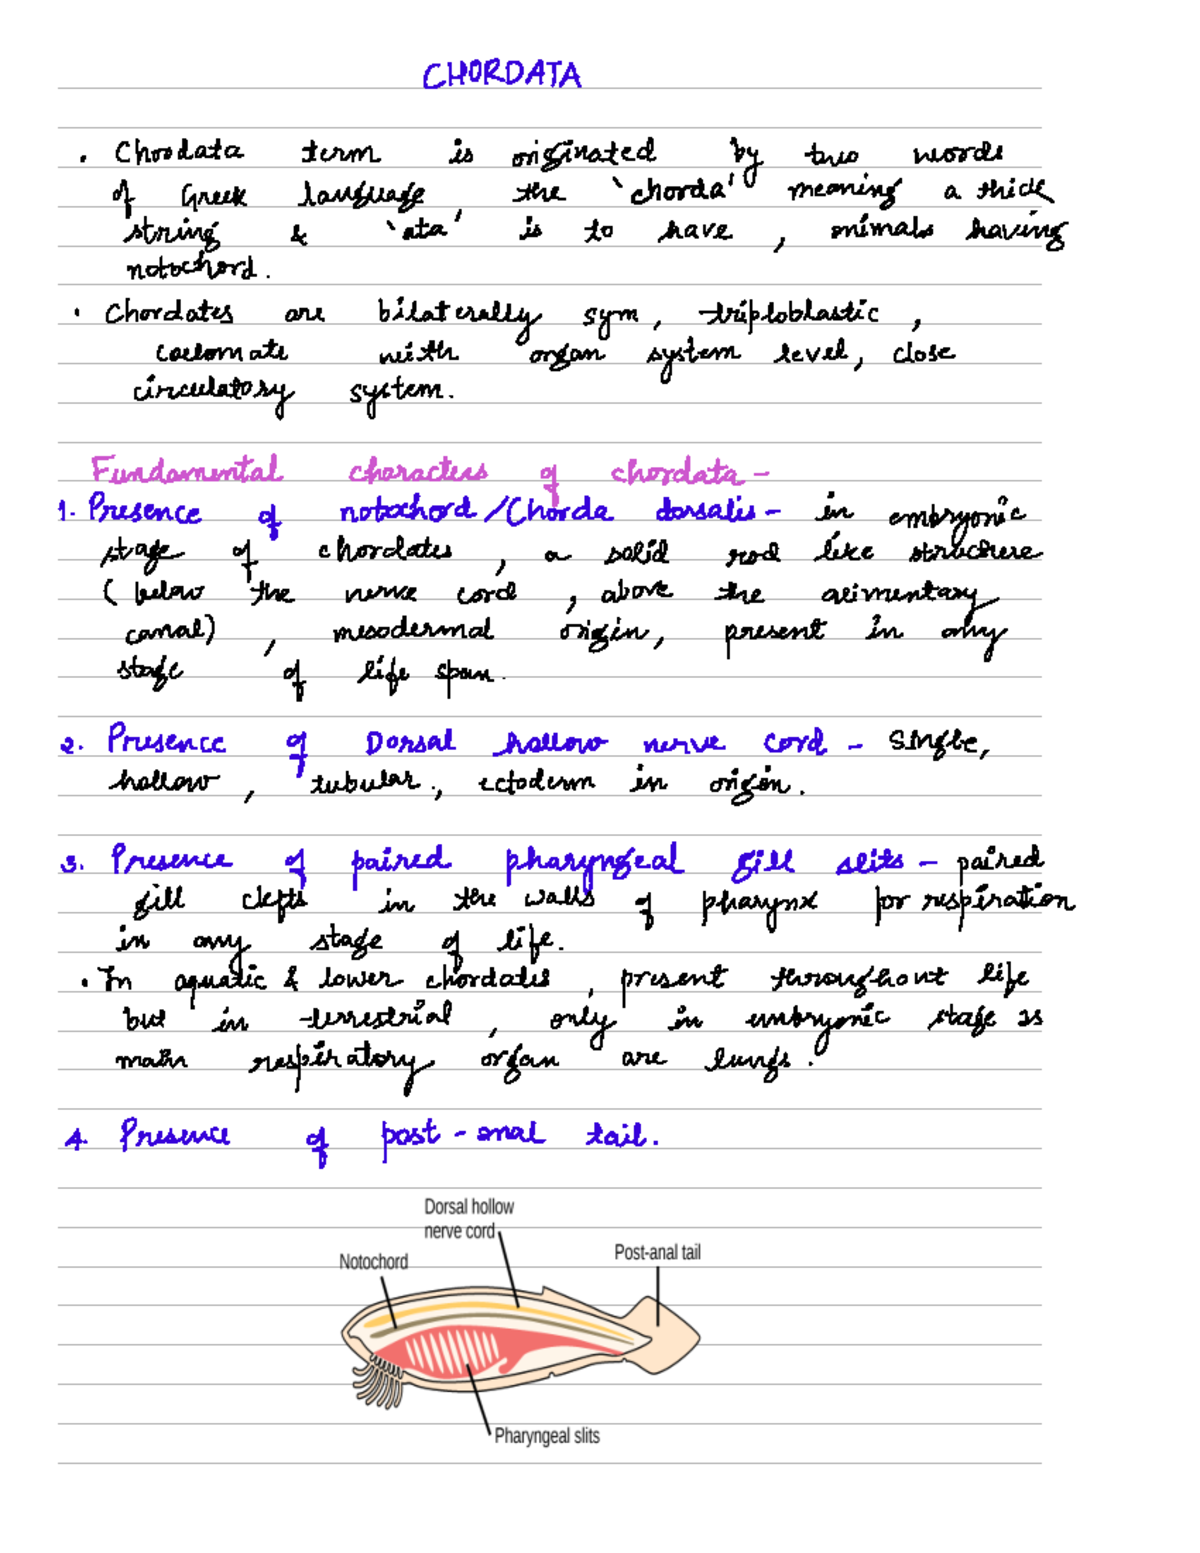 CHORDATA
. Chordata term is originated by two words
of Greek language, the 'chorda' meaning a thick
string & 'ata' is to have, animals having
notochord.
. Chordates are bilaterally sym, triploblastic,
coelomate with organ system level, close
circulatory system.
Fundamental characters of chordata -
1. Presence of notochord/Chorda dorsalis - in embryonic
stage of chordates, a solid rod like structure
(below the nerve cord, above the alimentary
canal), mesodermal origin, present in any
stage of life span.
2. Presence of Dorsal hollow nerve cord - Single,
hollow, tubular., ectoderm in origin.
3. Presence of paired pharyngeal gill slits - paired
gill clefts in the walls of pharynx for respiration
in any stage of life.
. In aquatic & lower chordates, present throughout life
but in terrestrial, only in embryonic stage as
main respiratory organ are lungs.
4. Presence of post-anal tail.
Dorsal hollow
nerve cord
Post-anal tail
Notochord
Pharyngeal slits